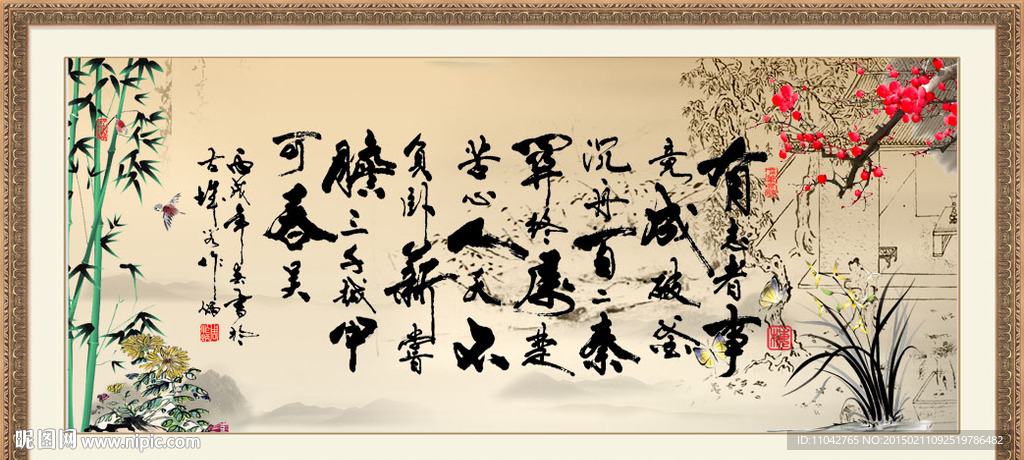 有志者事
竟成破釜
沉舟百二秦
關終屬楚
苦心人天不
負卧薪嘗
膽三千越甲
可吞吴
丙戌年春書於
昵图网 www.nipic.com
ID:11042765 NO:20150211092519786482